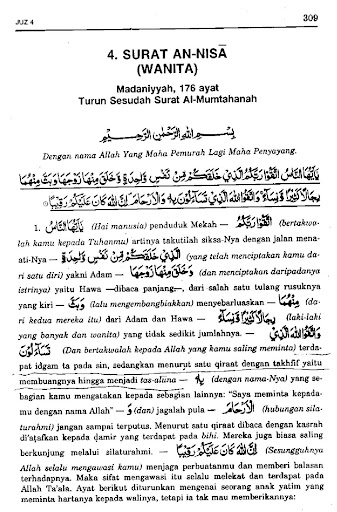 JUZ 4
309
4. SURAT AN-NISĀ
(WANITA)
Madaniyyah, 176 ayat
Turun Sesudah Surat Al-Mumtahanah
بِسْمِ اللهِ الرَّحْمٰنِ الرَّحِيْمِ
Dengan nama Allah Yang Maha Pemurah Lagi Maha Penyayang.
يٰٓاَيُّهَا النَّاسُ اتَّقُوْا رَبَّكُمُ الَّذِيْ خَلَقَكُمْ مِّنْ نَّفْسٍ وَّاحِدَةٍ وَّخَلَقَ مِنْهَا زَوْجَهَا وَبَثَّ مِنْهُمَا
رِجَالًا كَثِيْرًا وَّنِسَآءً وَاتَّقُوا اللهَ الَّذِيْ تَسَآءَلُوْنَ بِهٖ وَالْاَرْحَامَ اِنَّ اللهَ كَانَ عَلَيْكُمْ رَقِيْبًا
1. يٰٓاَيُّهَا النَّاسُ (Hai manusia) penduduk Mekah — اتَّقُوْا رَبَّكُمُ (bertakwa-
lah kamu kepada Tuhanmu) artinya takutilah siksa-Nya dengan jalan mena-
ati-Nya — الَّذِيْ خَلَقَكُمْ مِّنْ نَّفْسٍ وَّاحِدَةٍ (yang telah menciptakan kamu da-
ri satu diri) yakni Adam — وَّخَلَقَ مِنْهَا زَوْجَهَا (dan menciptakan daripadanya
istrinya) yaitu Hawa —dibaca panjang—, dari salah satu tulang rusuknya
yang kiri — وَبَثَّ (lalu mengembangbiakkan) menyebarluaskan — مِنْهُمَا (da-
ri kedua mereka itu) dari Adam dan Hawa — رِجَالًا كَثِيْرًا وَّنِسَآءً (laki-laki
yang banyak dan wanita) yang tidak sedikit jumlahnya. — وَاتَّقُوا اللهَ الَّذِيْ
تَسَآءَلُوْنَ (Dan bertakwalah kepada Allah yang kamu saling meminta) terda-
pat idgam ta pada sin, sedangkan menurut satu qiraat dengan takhfif yaitu
membuangnya hingga menjadi tas-aluna — بِهٖ (dengan nama-Nya) yang se-
bagian kamu mengatakan kepada sebagian lainnya: "Saya meminta kepada-
mu dengan nama Allah" — وَ (dan) jagalah pula — الْاَرْحَامَ (hubungan sila-
turahmi) jangan sampai terputus. Menurut satu qiraat dibaca dengan kasrah
di'aṭafkan kepada ḍamir yang terdapat pada bihi. Mereka juga biasa saling
berkunjung melalui silaturahmi. — اِنَّ اللهَ كَانَ عَلَيْكُمْ رَقِيْبًا (Sesungguhnya
Allah selalu mengawasi kamu) menjaga perbuatanmu dan memberi balasan
terhadapnya. Maka sifat mengawasi itu selalu melekat dan terdapat pada
Allah Ta'ala. Ayat berikut diturunkan mengenai seorang anak yatim yang
meminta hartanya kepada walinya, tetapi ia tak mau memberikannya: